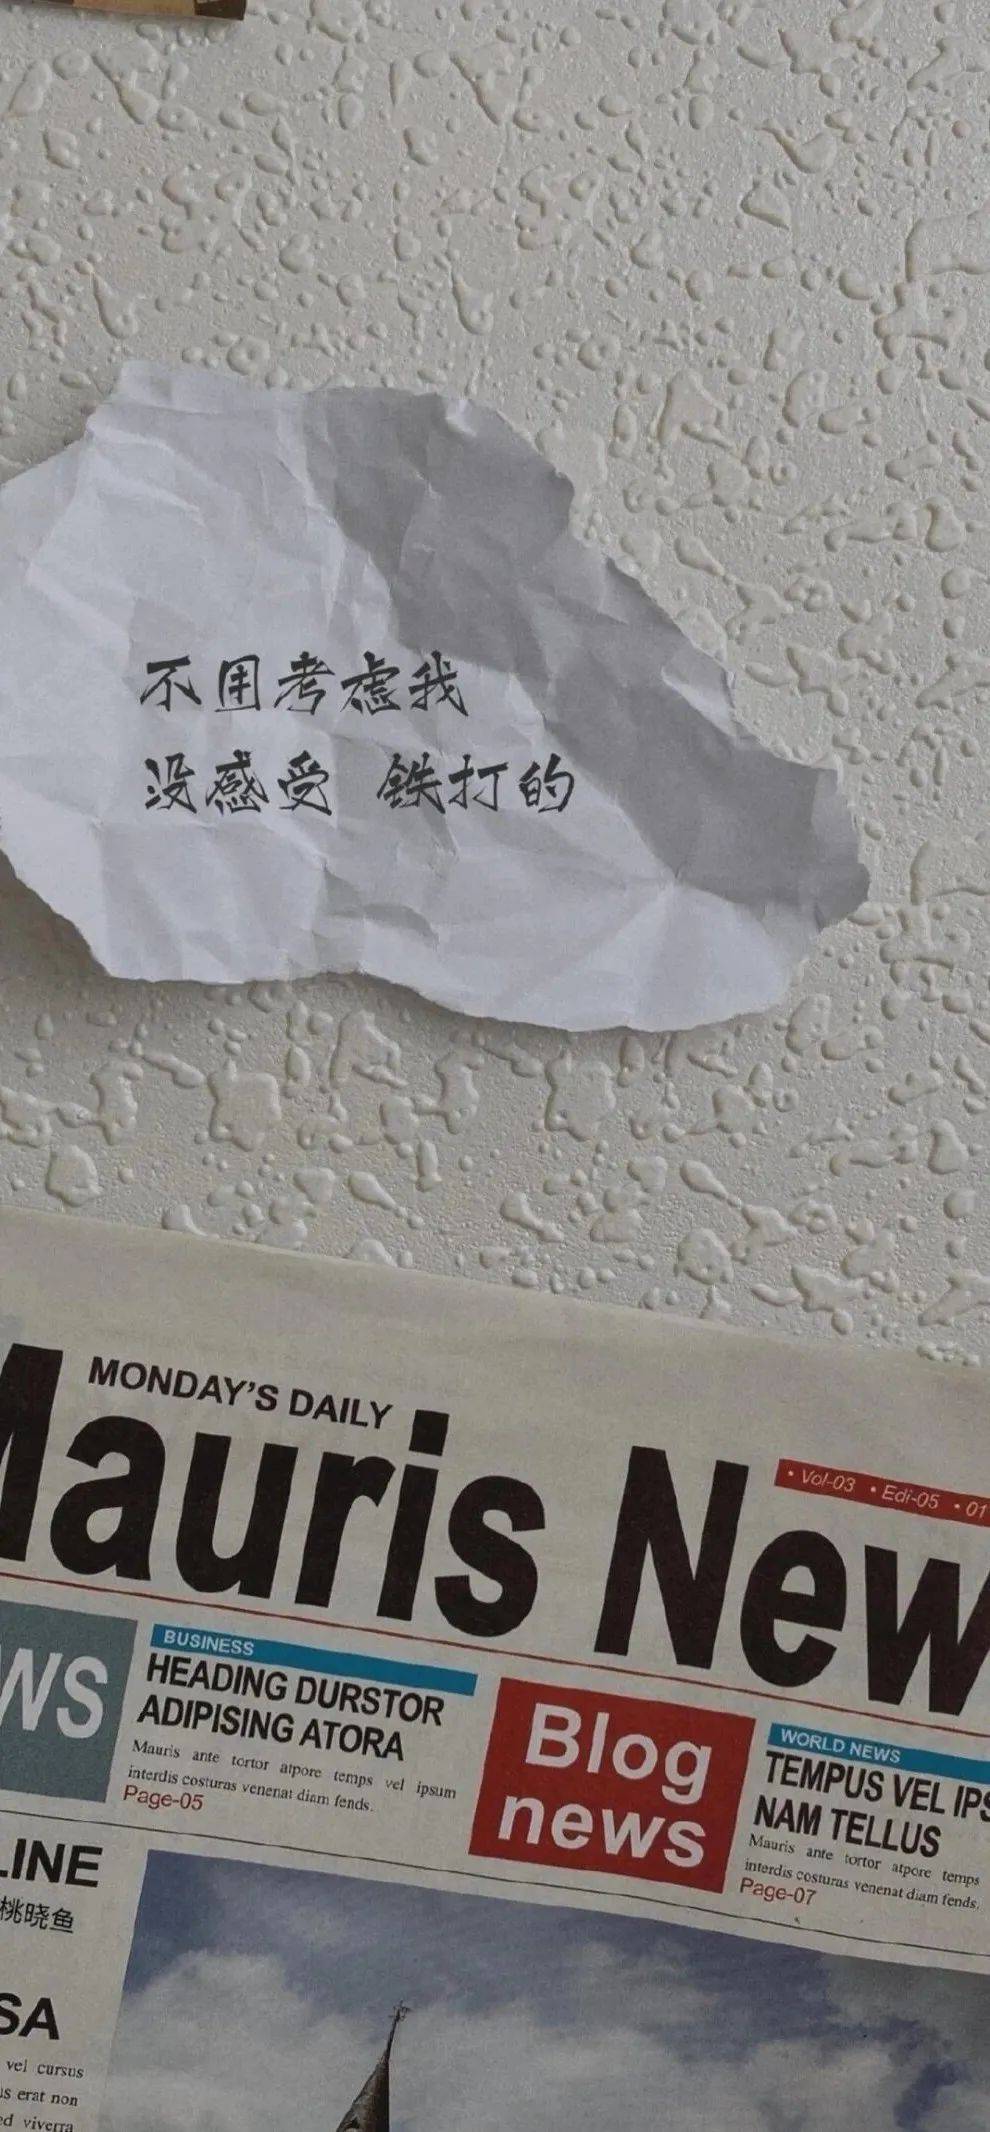 不用考虑我
没感受 铁打的
MONDAY'S DAILY
Mauris New
• Vol-03 • Edi-05 • 01
WS
BUSINESS
HEADING DURSTOR
ADIPISING ATORA
Mauris ante tortor atpore temps vel ipsum
interdis costuras venenat diam fends.
Page-05
Blog
news
WORLD NEWS
TEMPUS VEL IPS
NAM TELLUS
Mauris ante tortor atpore temps
interdis costuras venenat diam fends.
Page-07
LINE
桃晓鱼
SA
vel cursus
us erat non
ed viverra